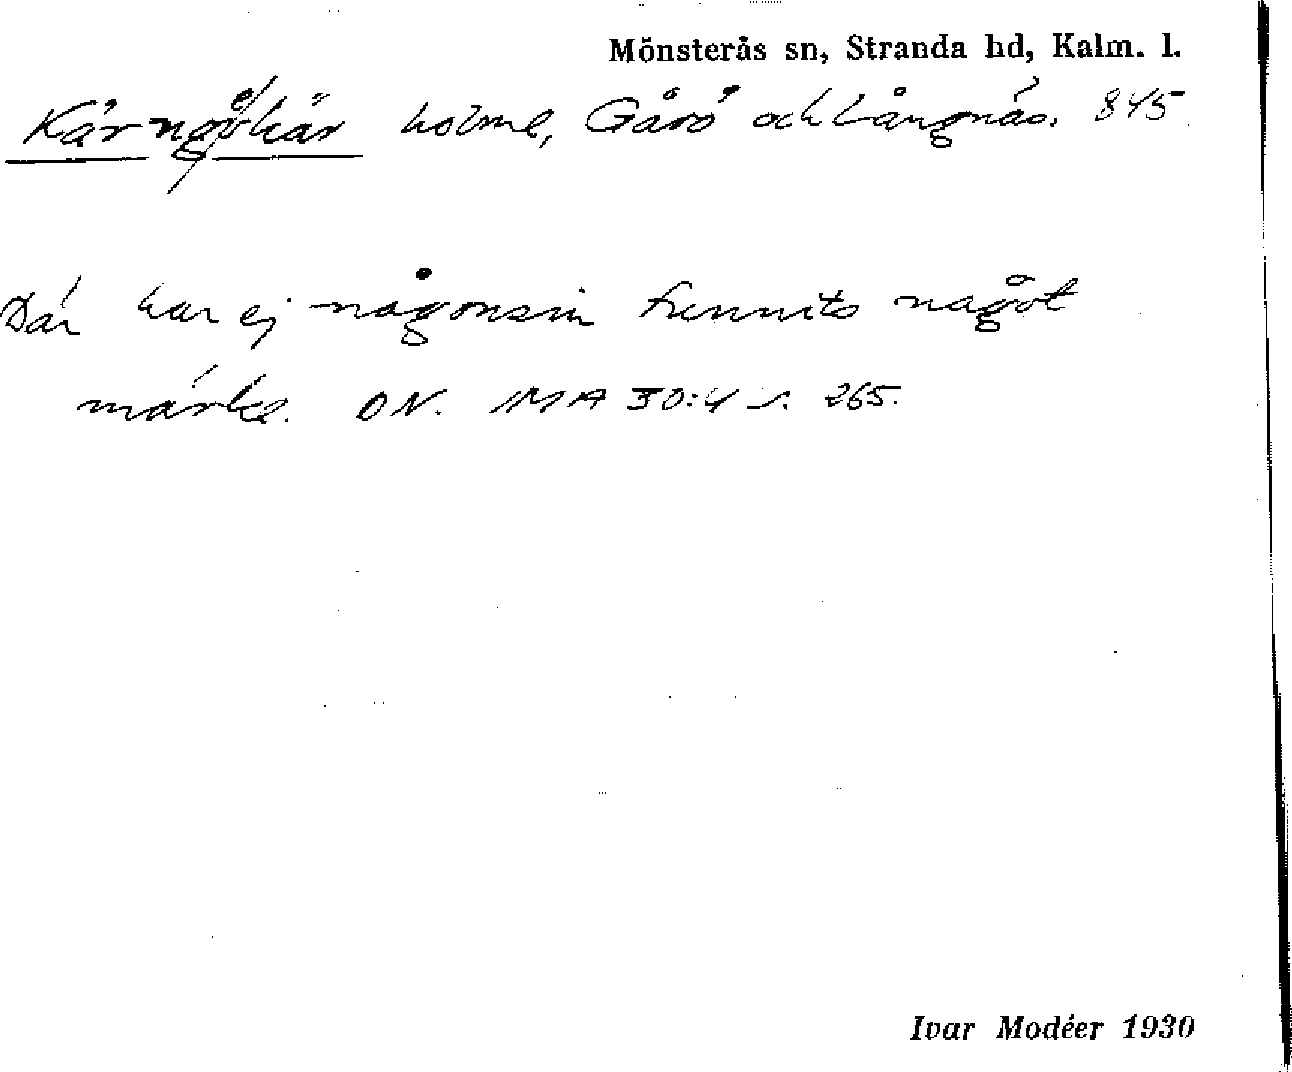 Mönsterås sn, Stranda hd, Kalm. l.
holme, Gåsö och Långnäs. 845.
Där har ej någonsin funnits något
märke. ON. IMA 30:4 s. 265.
Ivar Modéer 1930